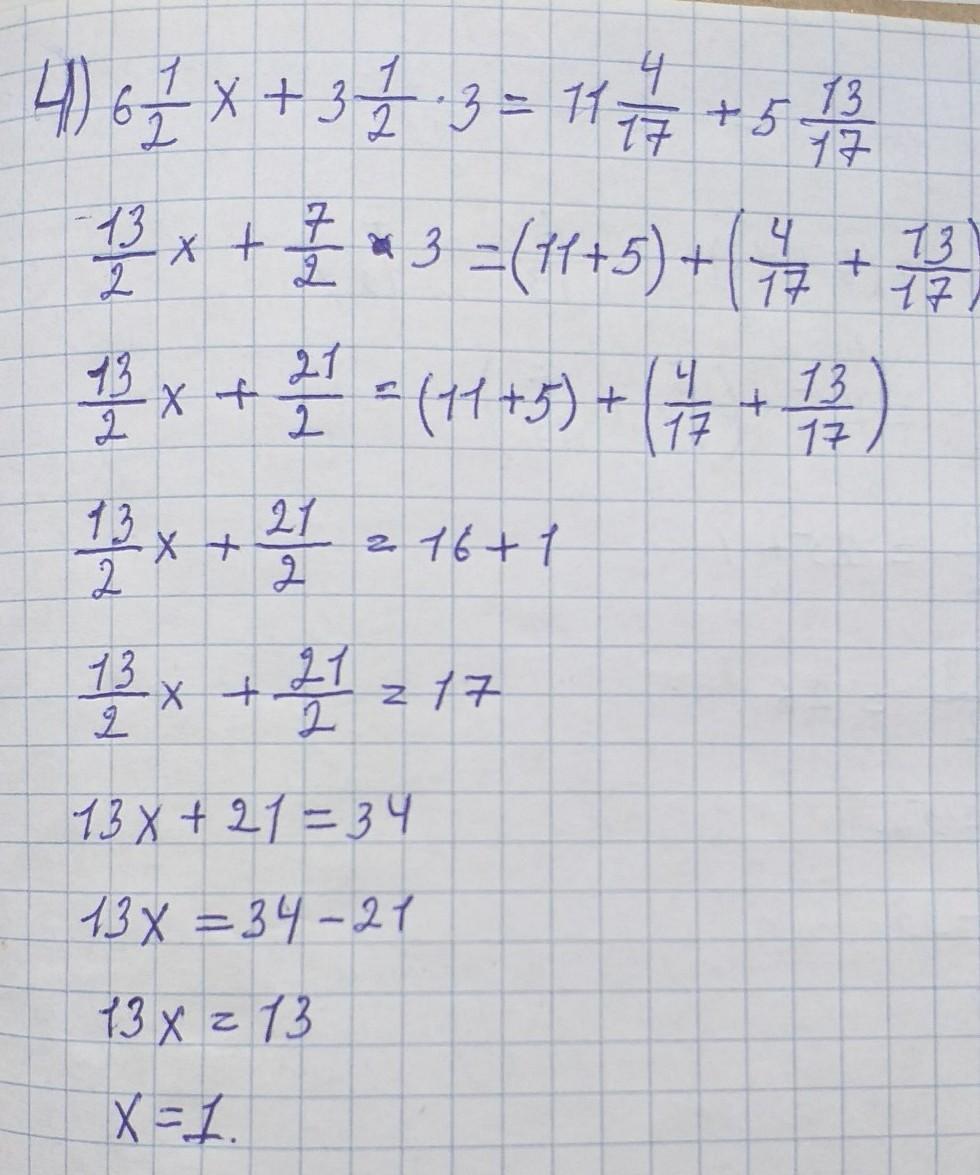 4) 6 1/2 x + 3 1/2 · 3 = 11 4/17 + 5 13/17
13/2 x + 7/2 · 3 = (11+5) + (4/17 + 13/17)
13/2 x + 21/2 = (11+5) + (4/17 + 13/17)
13/2 x + 21/2 = 16 + 1
13/2 x + 21/2 = 17
13x + 21 = 34
13x = 34 - 21
13x = 13
x = 1.